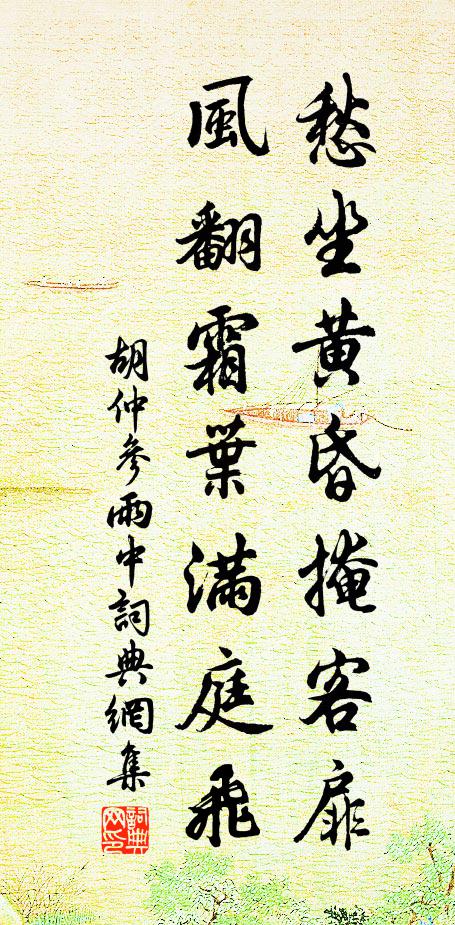 愁坐黄昏掩客扉
風翻霜葉满庭飛
胡仲參雨中詞典網集
詞典
网印